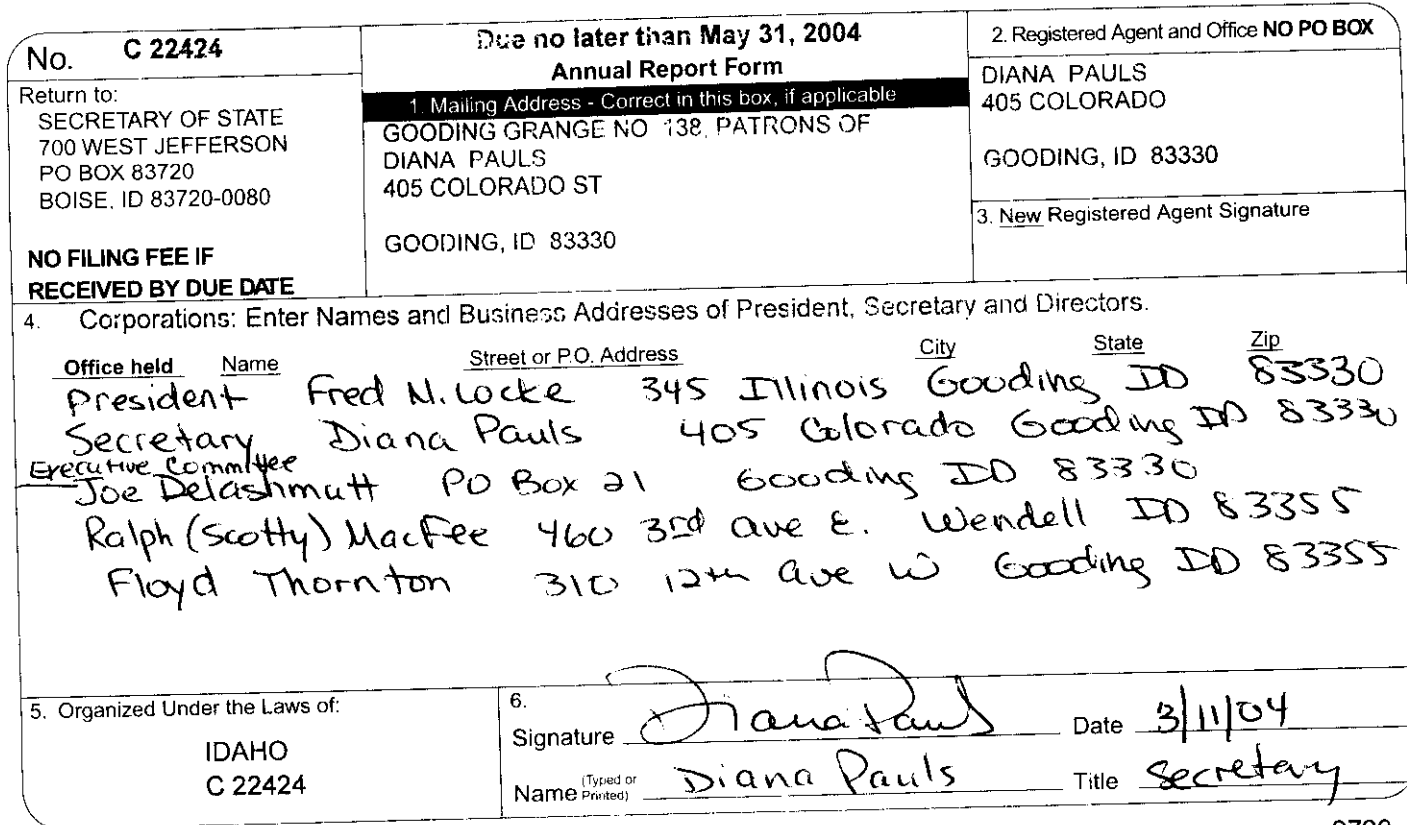 No. C 22424
Return to:
SECRETARY OF STATE
700 WEST JEFFERSON
PO BOX 83720
BOISE, ID 83720-0080
NO FILING FEE IF
RECEIVED BY DUE DATE
Due no later than May 31, 2004
Annual Report Form
1. Mailing Address - Correct in this box, if applicable
GOODING GRANGE NO 138, PATRONS OF
DIANA PAULS
405 COLORADO ST
GOODING, ID 83330
2. Registered Agent and Office NO PO BOX
DIANA PAULS
405 COLORADO
GOODING, ID 83330
3. New Registered Agent Signature
4. Corporations: Enter Names and Business Addresses of President, Secretary and Directors.
Office held Name Street or P.O. Address City State Zip
President Fred N. Locke 345 Illinois Gooding ID 83330
Secretary Diana Pauls 405 Colorado Gooding ID 83330
Executive Committee
Joe Delashmutt PO Box 21 Gooding ID 83330
Ralph (Scotty) MacFee 460 3rd ave E. Wendell ID 83355
Floyd Thornton 310 12th ave W Gooding ID 83355
5. Organized Under the Laws of:
IDAHO
C 22424
6.
Signature Diana Pauls Date 3/11/04
Name (Typed or Printed) Diana Pauls Title Secretary